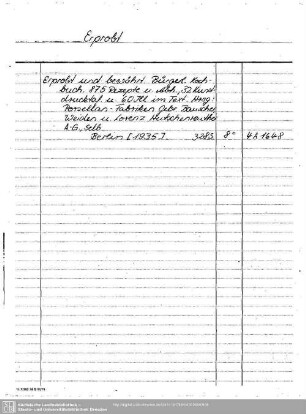 Erprobt
Erprobt und bewährt. Bürgerl. Koch-
buch. 875 Rezepte u. Abh., 32 Kunst-
drucktaf. u. 60 Ill. im Text. Hrsg.:
Porzellan-Fabriken Gebr. Bauscher
Weiden u. Lorenz Hutschenreuther
A.G., Selb.
Berlin [1935]. 328 S. 8° 4 A 1648
Sächsische Landesbibliothek -
Staats- und Universitätsbibliothek Dresden